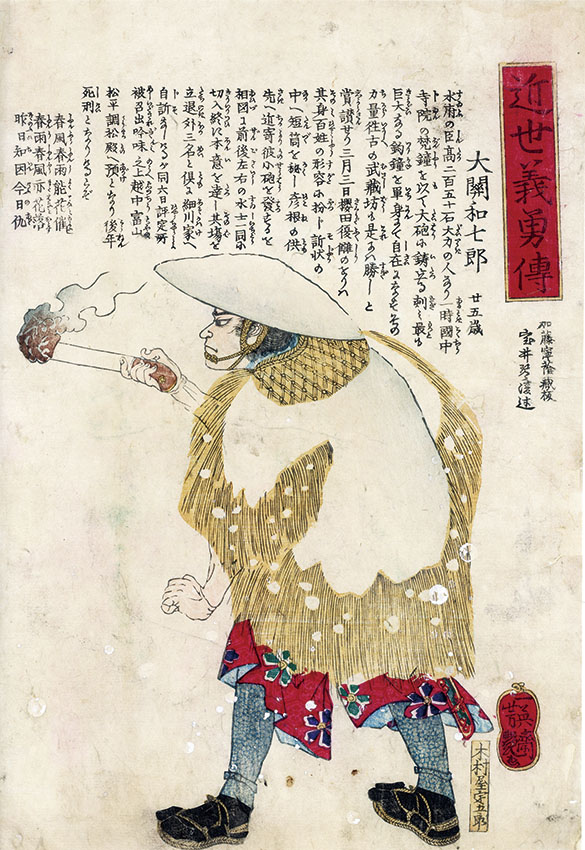 近世義勇傳
宝井琴凌述
大關和七郎 廿五歳
水府の臣高二百五十石大力の人なり一時國中
寺院の梵鐘を以て大砲に鋳立る刺最も
巨大なる釣鐘を単身にて自在になすその
力量往古の武藏坊も是には勝じと
賞讃せり三月三日櫻田のをりハ
其身百姓の形容に扮し訴状の
中へ短筒を秘め彦根の供
先へ進寄彼小砲を發ると
相図に前後左右の水士一同に
切入終に本意を達し其場を
立退外三名と倶に細川家へ
自訴に及るが同六日評定所
被召出吟味之上越中富山
松平調松殿へ預となり後年
死刑となりけるとぞ
春風春雨能花催
春雨春風亦花落
昨日知因今日仇
木村屋宗五郎